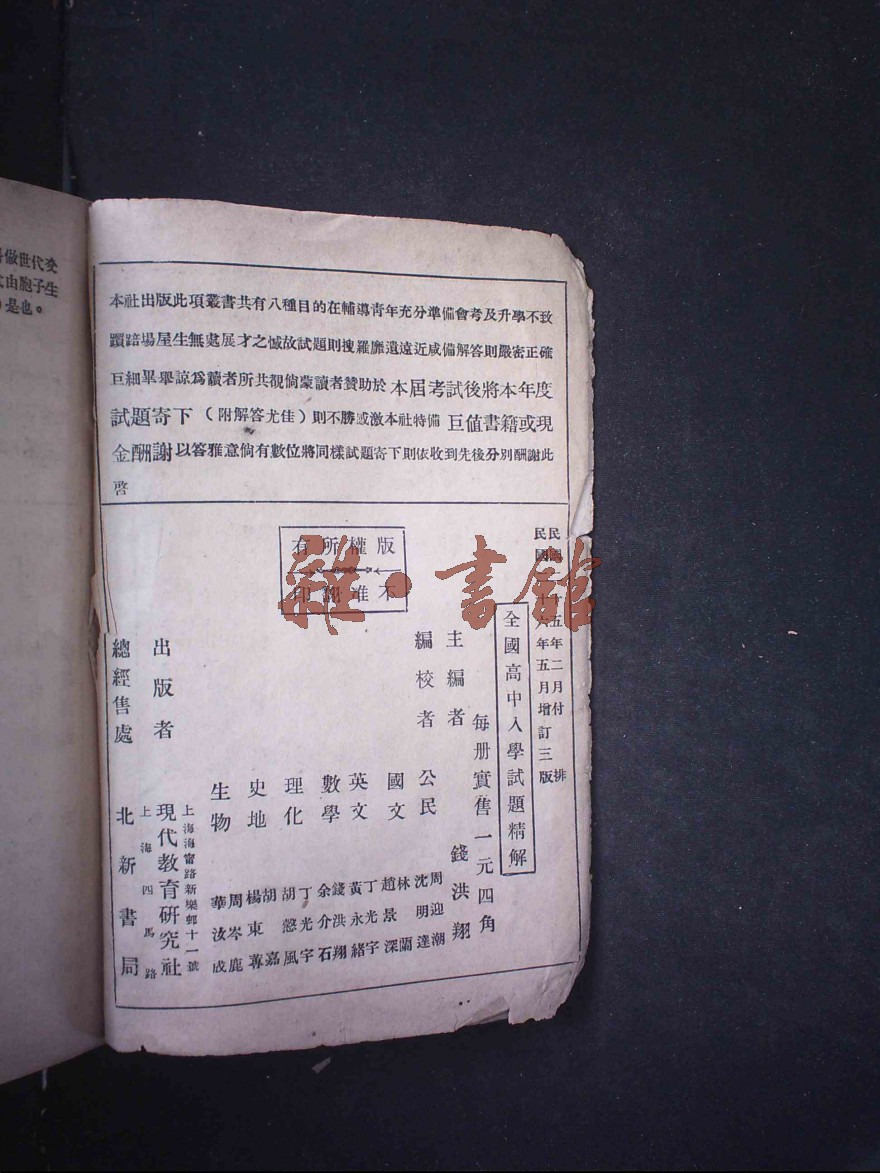 每做世代交
由胞子生
是也。
本社出版此項叢書共有八種目的在輔導青年充分準備會考及升學不致
躓踣場屋生無處展才之憾故試題則搜羅靡遺遠近咸備解答則嚴密正確
巨細畢舉諒爲讀者所共覩倘蒙讀者贊助於本屆考試後將本年度
試題寄下(附解答尤佳)則不勝感激本社特備巨值書籍或現
金酬謝以答雅意倘有數位將同樣試題寄下則依收到先後分別酬謝此
啓
民國 五年二月付排
民國 年五月增訂三版
全國高中入學試題精解
每册實售一元四角
主編者 錢洪翔
編校者
公民 周迎潮 沈明達
國文 林蘭 趙景深
英文 丁光宇 黃永緒
數學 錢洪翔 余介石
理化 丁光宇 胡憨風
史地 胡嘉 楊東蓴
生物 周岑鹿 華汝成
版權所有
不准翻印
出版者 現代教育研究社
上海海甯路新樂邨十一號
總經售處 北新書局
上海四馬路
雜·書館